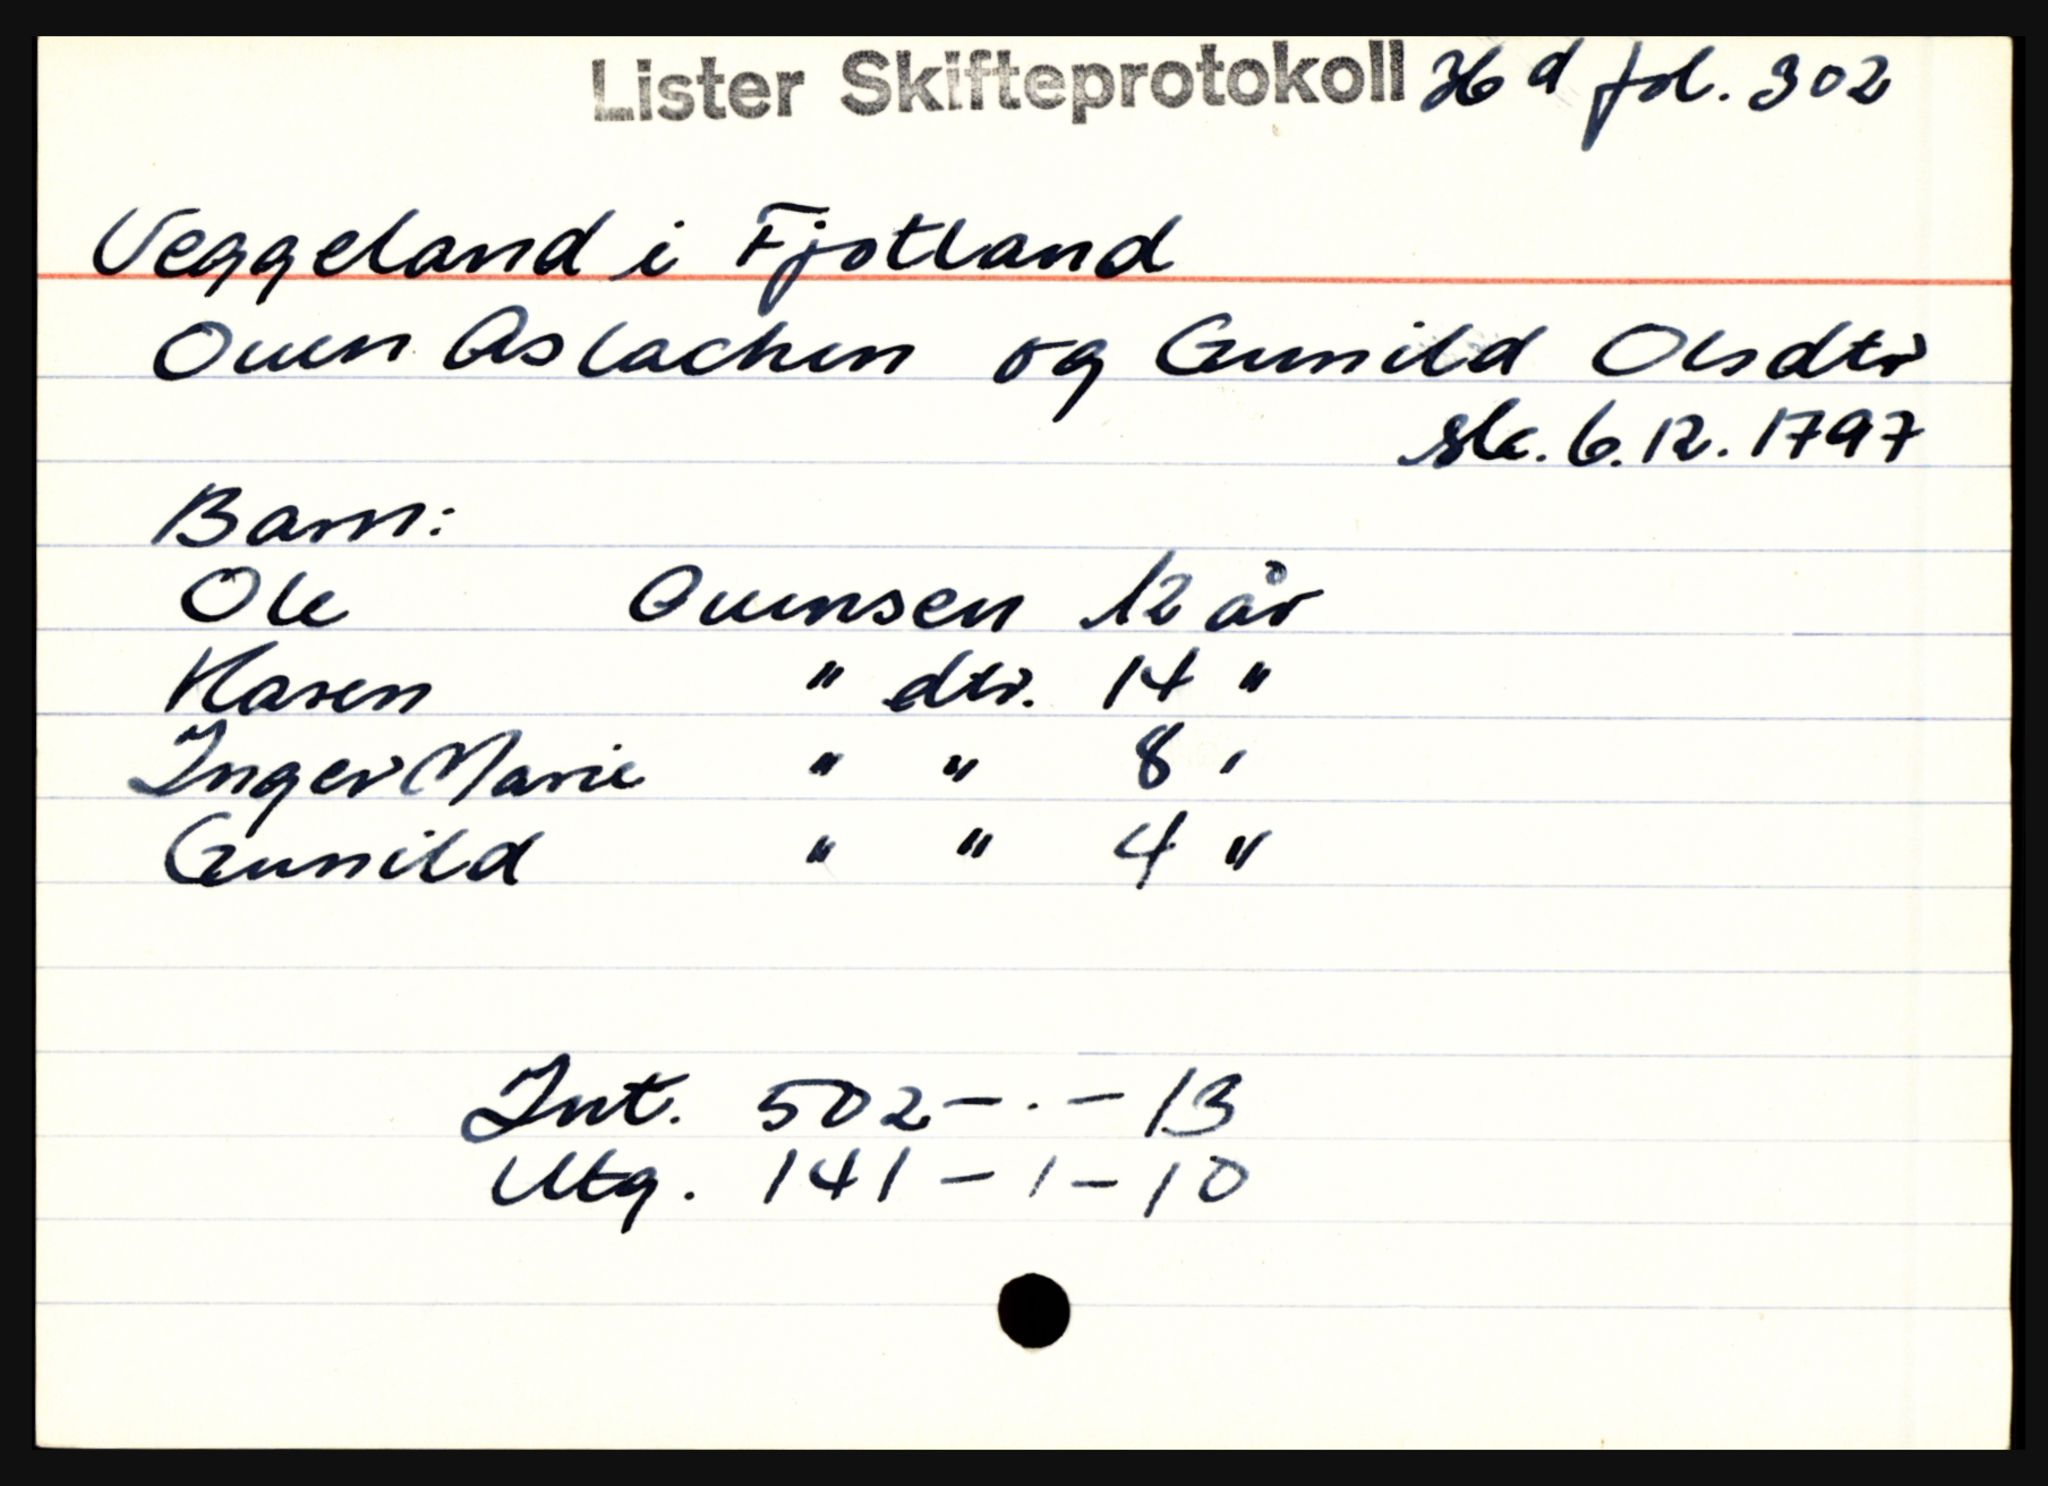 Lister Skifteprotokoll H d fol. 302
Veggeland i Fjotland
Ouen Aslachsen og Gunild Olsdtr
sl. 6.12.1797
Barn:
Ole Ouensen 12 år
Karen " dtr. 14 "
Inger Marie " " 8 "
Gunild " " 4 "
Int. 502 - . - 13
Utg. 141 - 1 - 10